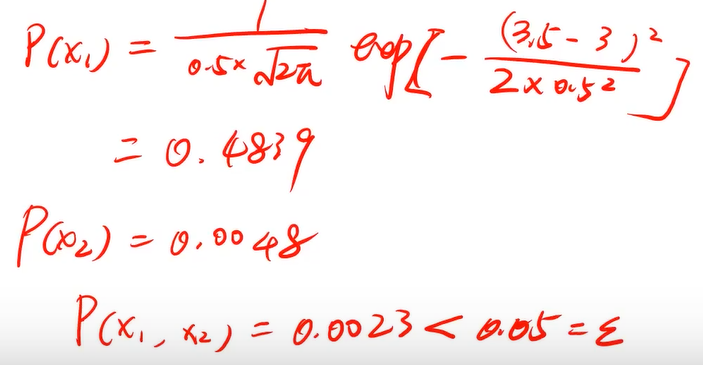 P(x₁) = 1 / (0.5 × √2π) exp[ - (3.5 - 3)² / (2 × 0.5²) ]
= 0.4839
P(x₂) = 0.0048
P(x₁, x₂) = 0.0023 < 0.05 = ε